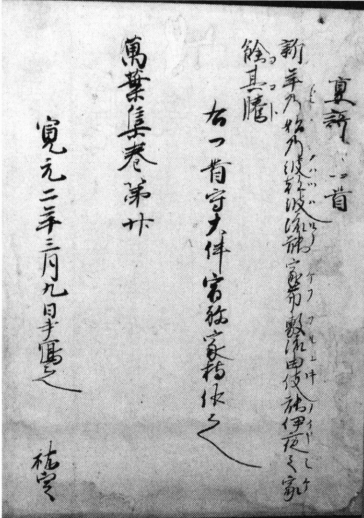 宴謌一首
新年乃始乃波都波流能家布敷流由伎能伊夜之家
餘其騰
右一首守大伴宿祢家持作之
萬葉集巻第廿
寛元二年三月九日手寫之